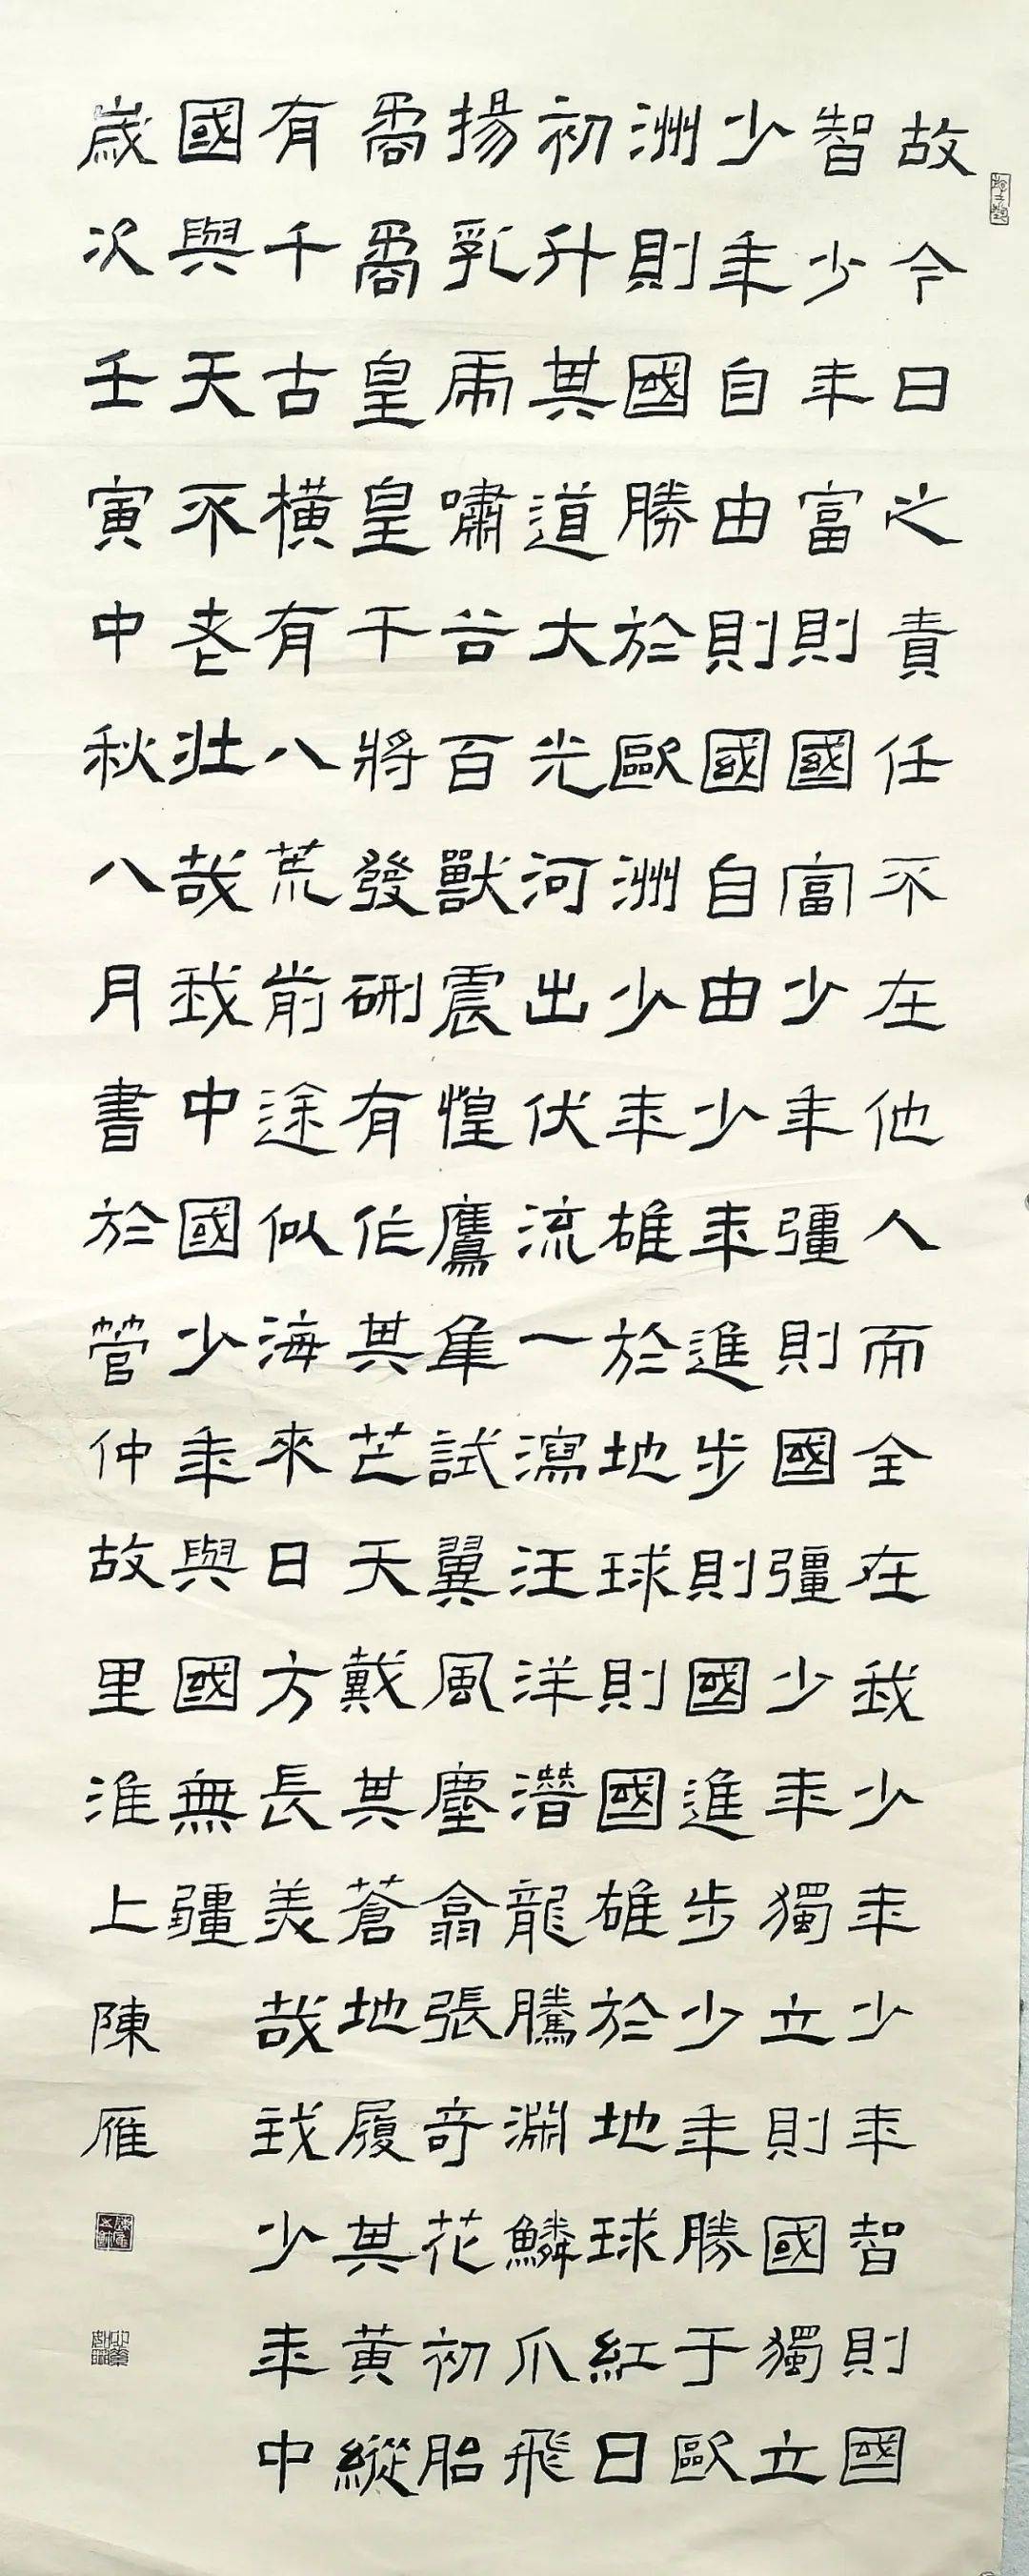 故今日之責任不在他人而全在我少年少年智則國
智少年富則國富少年彊則國彊少年獨立則國獨立
少年自由則國自由少年進步則國進步少年勝于歐
洲則國勝於歐洲少年雄於地球則國雄於地球紅日
初升其道大光河出伏流一瀉汪洋潛龍騰淵鱗爪飛
揚乳虎嘯谷百獸震惶鷹隼試翼風塵翕張奇花初胎
矞矞皇皇干將發硎有作其芒天戴其蒼地履其黃縱
有千古橫有八荒前途似海來日方長美哉我少年中
國與天不老壯哉我中國少年與國無疆
歲次壬寅中秋八月書於管仲故里淮上陳雁